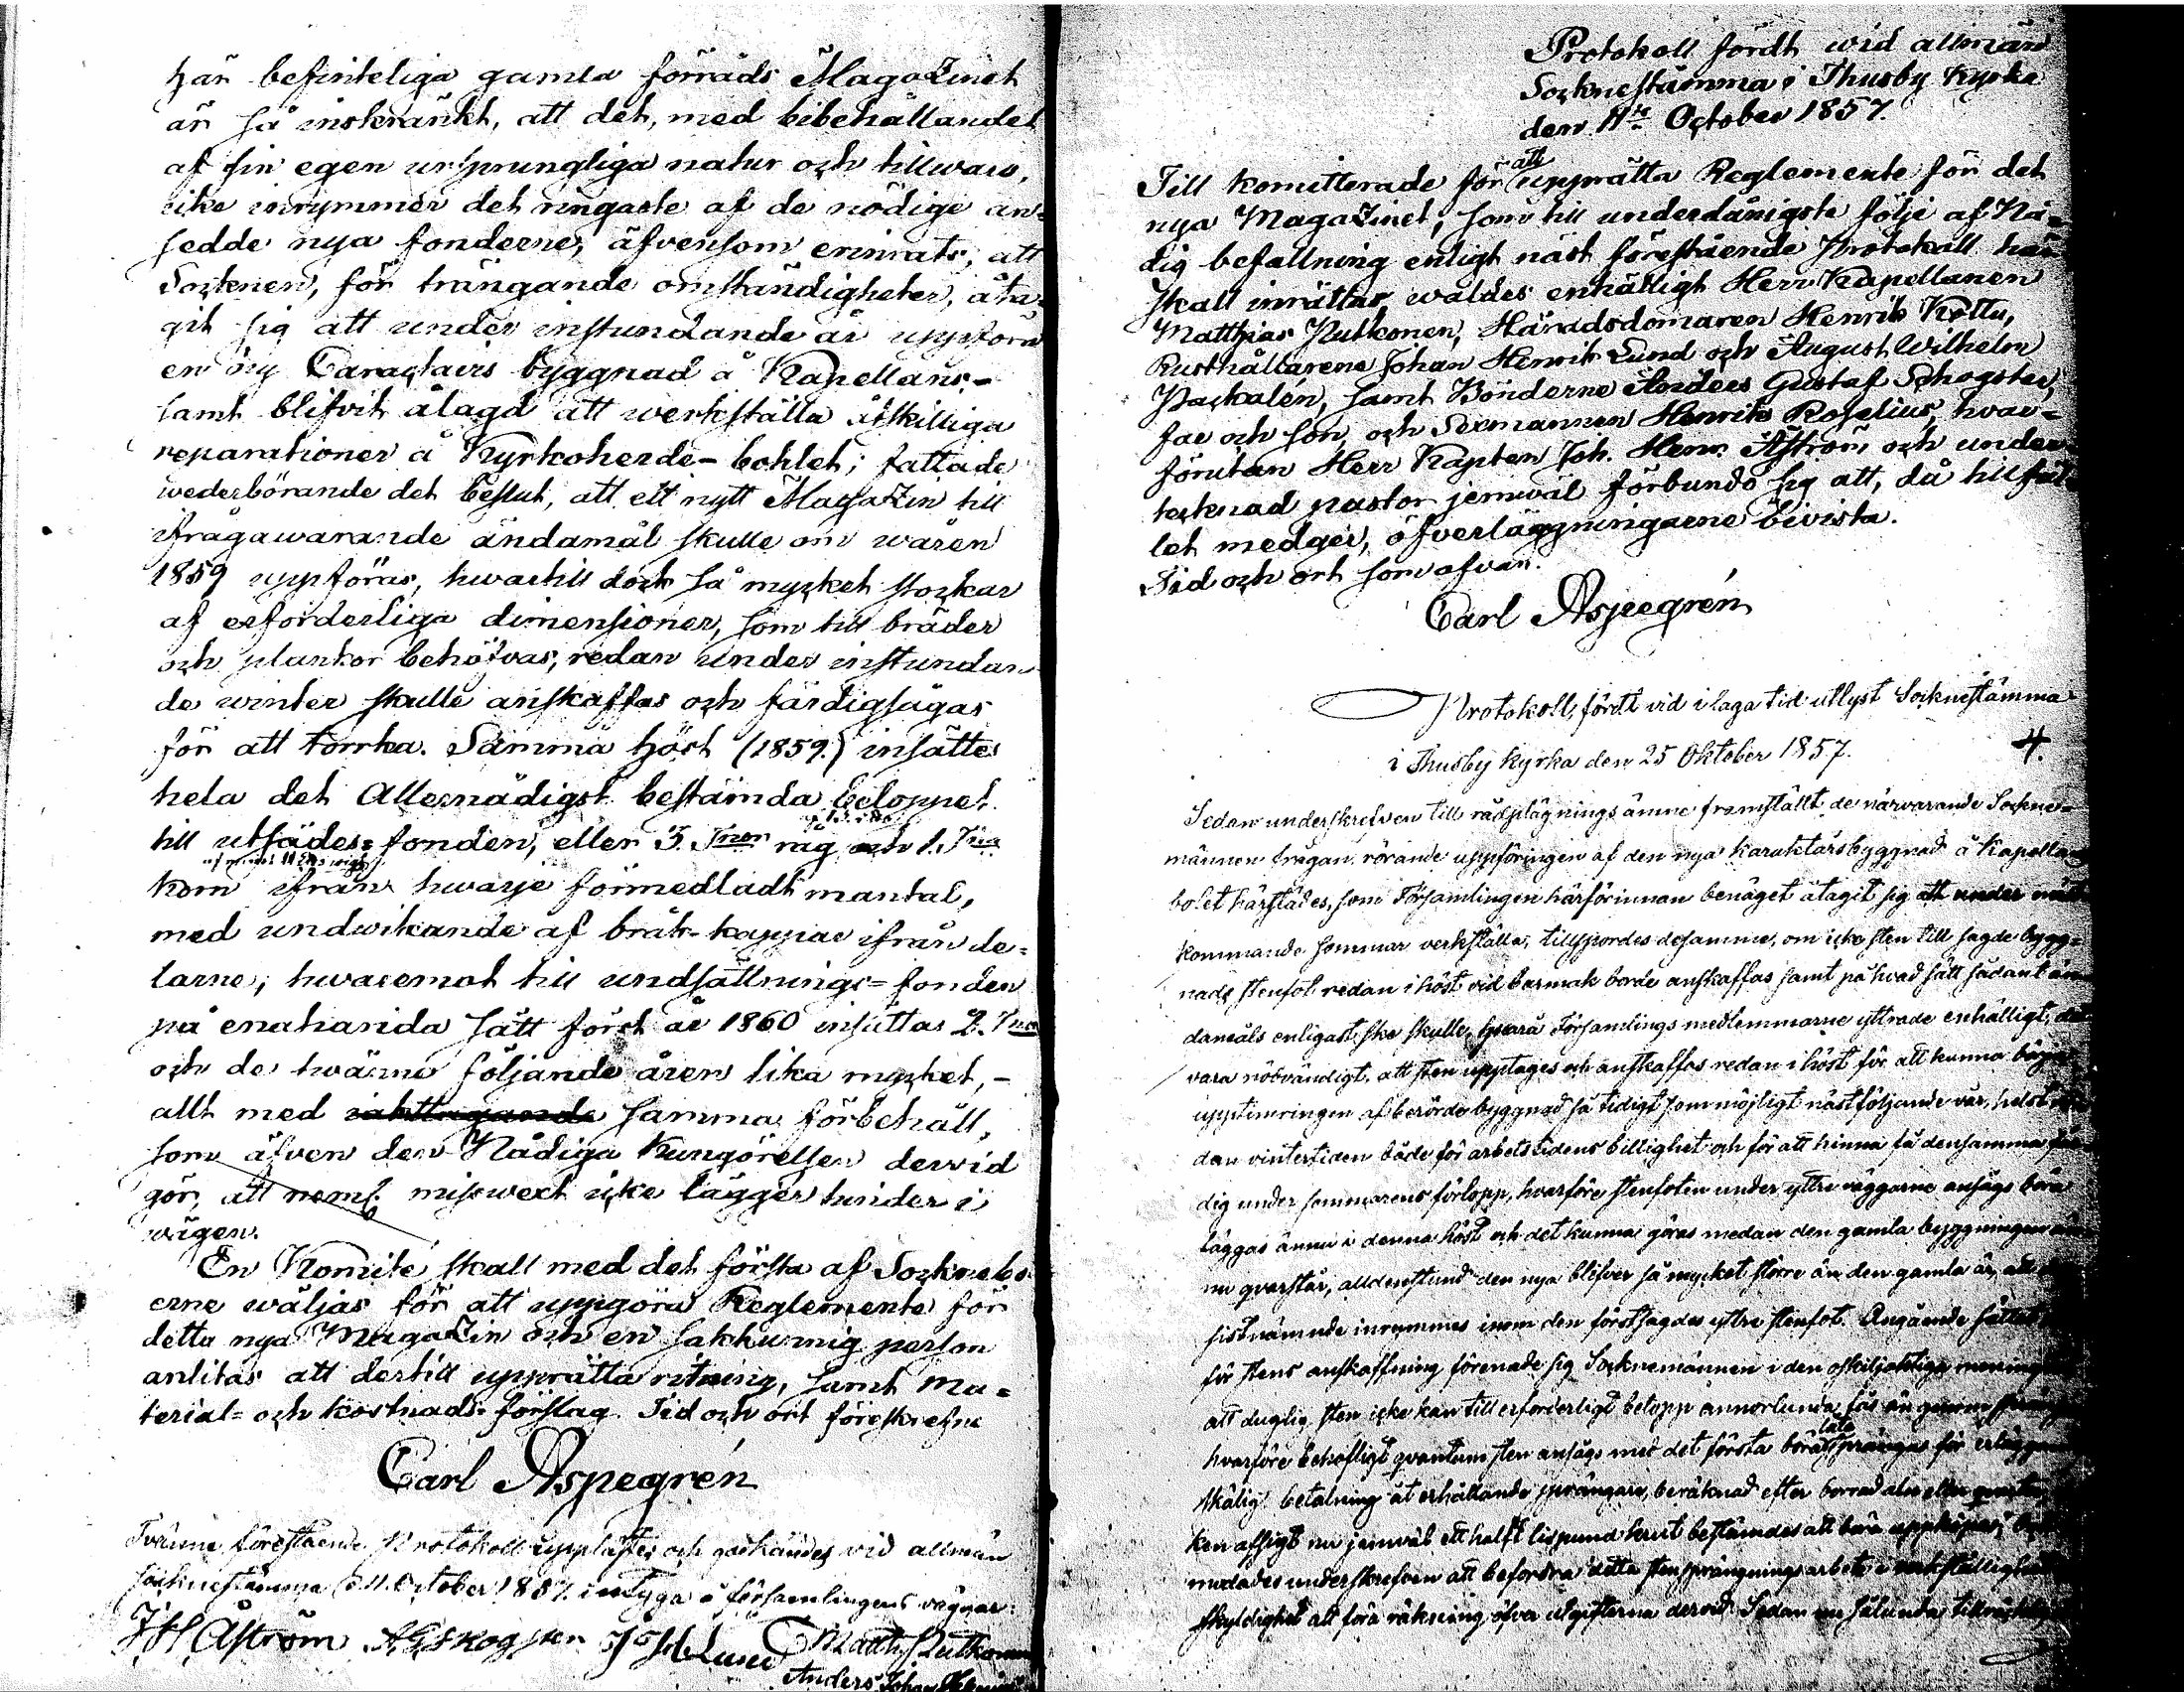 här befinteliga gamla förråds Magazinet
är så inskränkt, att det, med bibehållandet
af sin egen ursprungliga natur och tillwaro,
icke inrymmer det ringaste af de nödige an=
sedde nya fonderne, äfvensom erinrats, att
Socknen, för trängande omständigheter, åta=
git sig att under instundande år uppföra
en ny Caractairs byggnad å Kapellans-
samt blifvit ålagd att werkställa åtskilliga
reparationer å Kyrkoherde-bohlet; fattade
wederbörande det beslut, att ett nytt Magazin till
ifrågawarande ändamål skulle om wåren
1859 uppföras, hwartill dock så mycket stockar
af erforderliga dimensioner, som till bräder
och plankor behöfvas, redan under instundan
de winter skulle anskaffas och färdigsågas
för att torrka. Samma höst (1859.) insättes
hela det Allernådigst bestämda beloppet
till utsädes=fonden, eller 3. Tnor råg och 1. Tna
korn ifrån hwarje förmedladt mantal,
med undwikande af bråk-kappar ifrån de=
larne; hwaremot till undsättnings=fonden
på enahanda sätt först år 1860 insättas 2. Tnor
och de twänne följande åren lika mycket,-
allt med iakttagande samma förbehåll,
som äfven den Nådiga Kungörelsen dervid
gör, att neml. missvext icke lägger hinder i
wägen.
En Komité skall med det första af Socknebo
erne wäljas för att uppgöra Reglemente för
detta nya Magazin och en sakkunnig person
anlitas att dertill upprätta ritning, samt Ma=
terial= och kostnads-förslag. Tid och ort föreskrefne
Carl Aspegrén
Tvänne förestående Protokoll upplästes och godkändes vid allmän
Socknestämma d. 11. October 1857. intyga å församlingens vägnar:
J H Åström A G Skogster J H Lund Matth. Putkonen
Anders Johan
Protokoll fördt wid allmän
Socknestämma i Thusby Kyrka
den 11te October 1857.
Till komitterade för att upprätta Reglemente för det
nya Magazinet, som till underdånigste följe af Nå=
dig befallning enligt näst förestående Protokoll här
skall inrättas, waldes enhälligt Herr Kapellanen
Matthias Putkonen, Häradsdomaren Henrik Kottu,
Rusthållarene Johan Henrik Lund och August Wilhelm
Packalén, samt Bönderne Anders Gustaf Schogster,
far och son, och Sexmannen Henrik Roselius, hvar=
förutan Herr Kapten Joh. Henr. Åström och under
tecknad pastor jemwäl förbundo sig att, då tillfäl
let medger, öfverläggningarne bevista.
Tid och ort som ofvan.
Carl Aspegrén
Protokoll, fördt vid i laga tid utlyst Socknestämma
i Thusby kyrka den 25 Oktober 1857. 4.
Sedan underskrefven till rådplägnings ämne framställt de närvarande Sockne=
männen frågan rörande uppföringen af den nya karaktärsbyggnad å Kapellans
bolet härstädes, som Församlingen härförinnan benäget åtagit sig att under näst
kommande sommar verkställa; tillspordes desamme, om icke sten till sagde bygg=
nads stenfot redan i höst vid barmark borde anskaffas samt på hvad sätt sådant än
damåls enligast ske skulle, hvarå Församlings medlemmarne yttrade enhälligt, det
vara nödvändigt, att sten upptages och anskaffas redan i höst för att kunna börja
upptimringen af berörde byggnad så tidigt som möjligt nästföljande vår, helst
dan vintertiden både för arbetstidens billighet och för att hinna få densamma fär
dig under sommarens förlopp, hvarföre stenfoten under yttre väggarne ansågs böra
läggas ännu i denna höst och det kunna göras medan den gamla byggningen än
nu qvarstår, alldenstund den nya blifver så mycket större än den gamla är, att
sistnämnde inrymmes inom den förstsagdes yttre stenfot. Angående sättet
för stens anskaffning förenade sig Socknemännen i den oskiljaktiga mening
att duglig sten icke kan till erforderligt belopp annorlunda fås än genom
hvarföre behöfligt qvantum sten ansågs med det första böra låta sprängas för
skälig betalning åt erhållande sprängare, beräknad efter borrad aln eller
ken afsigt nu jemväl ett halft lispund krut bestämdes att böra uppköpas,
medades underskrefven att befordra detta stensprängnings arbete i verkställighet
skyldighet att föra räkning öfver utgifterna dervid. Sedan nu sålunda